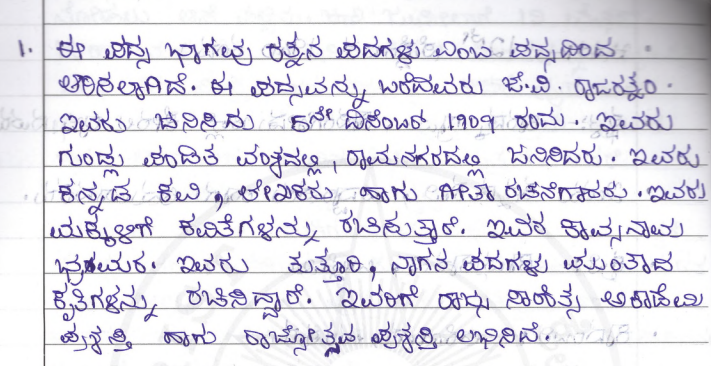 1. ಈ ಪದ್ಯ ಭಾಗವು ರತ್ನನ ಪದಗಳು ಎಂಬ ಪದ್ಯದಿಂದ
ಆರಿಸಲಾಗಿದೆ. ಈ ಪದ್ಯವನ್ನು ಬರೆದವರು ಜಿ.ಪಿ. ರಾಜರತ್ನಂ.
ಇವರು ಜನಿಸಿದು 5ನೇ ಡಿಸೆಂಬರ್ 1909 ರಂದು. ಇವರು
ಗುಂಡ್ಲು ಪಂಡಿತ ವಂಶದಲ್ಲಿ, ರಾಮನಗರದಲ್ಲಿ ಜನಿಸಿದರು. ಇವರು
ಕನ್ನಡ ಕವಿ, ಲೇಖಕರು, ಹಾಗು ಗೀತಾ ರಚನೆಗಾರರು. ಇವರು
ಮಕ್ಕಳಿಗೆ ಕವಿತೆಗಳನ್ನು ರಚಿಸುತ್ತಾರೆ. ಇವರ ಕಾವ್ಯನಾಮ
ಭ್ರಮರ. ಇವರು ತುತ್ತೂರಿ, ನಾಗನ ಪದಗಳು ಮುಂತಾದ
ಕೃತಿಗಳನ್ನು ರಚಿಸಿದ್ದಾರೆ. ಇವರಿಗೆ ರಾಜ್ಯ ಸಾಹಿತ್ಯ ಅಕಾಡೆಮಿ
ಪ್ರಶಸ್ತಿ ಹಾಗು ರಾಜ್ಯೋತ್ಸವ ಪ್ರಶಸ್ತಿ ಲಭಿಸಿದೆ.